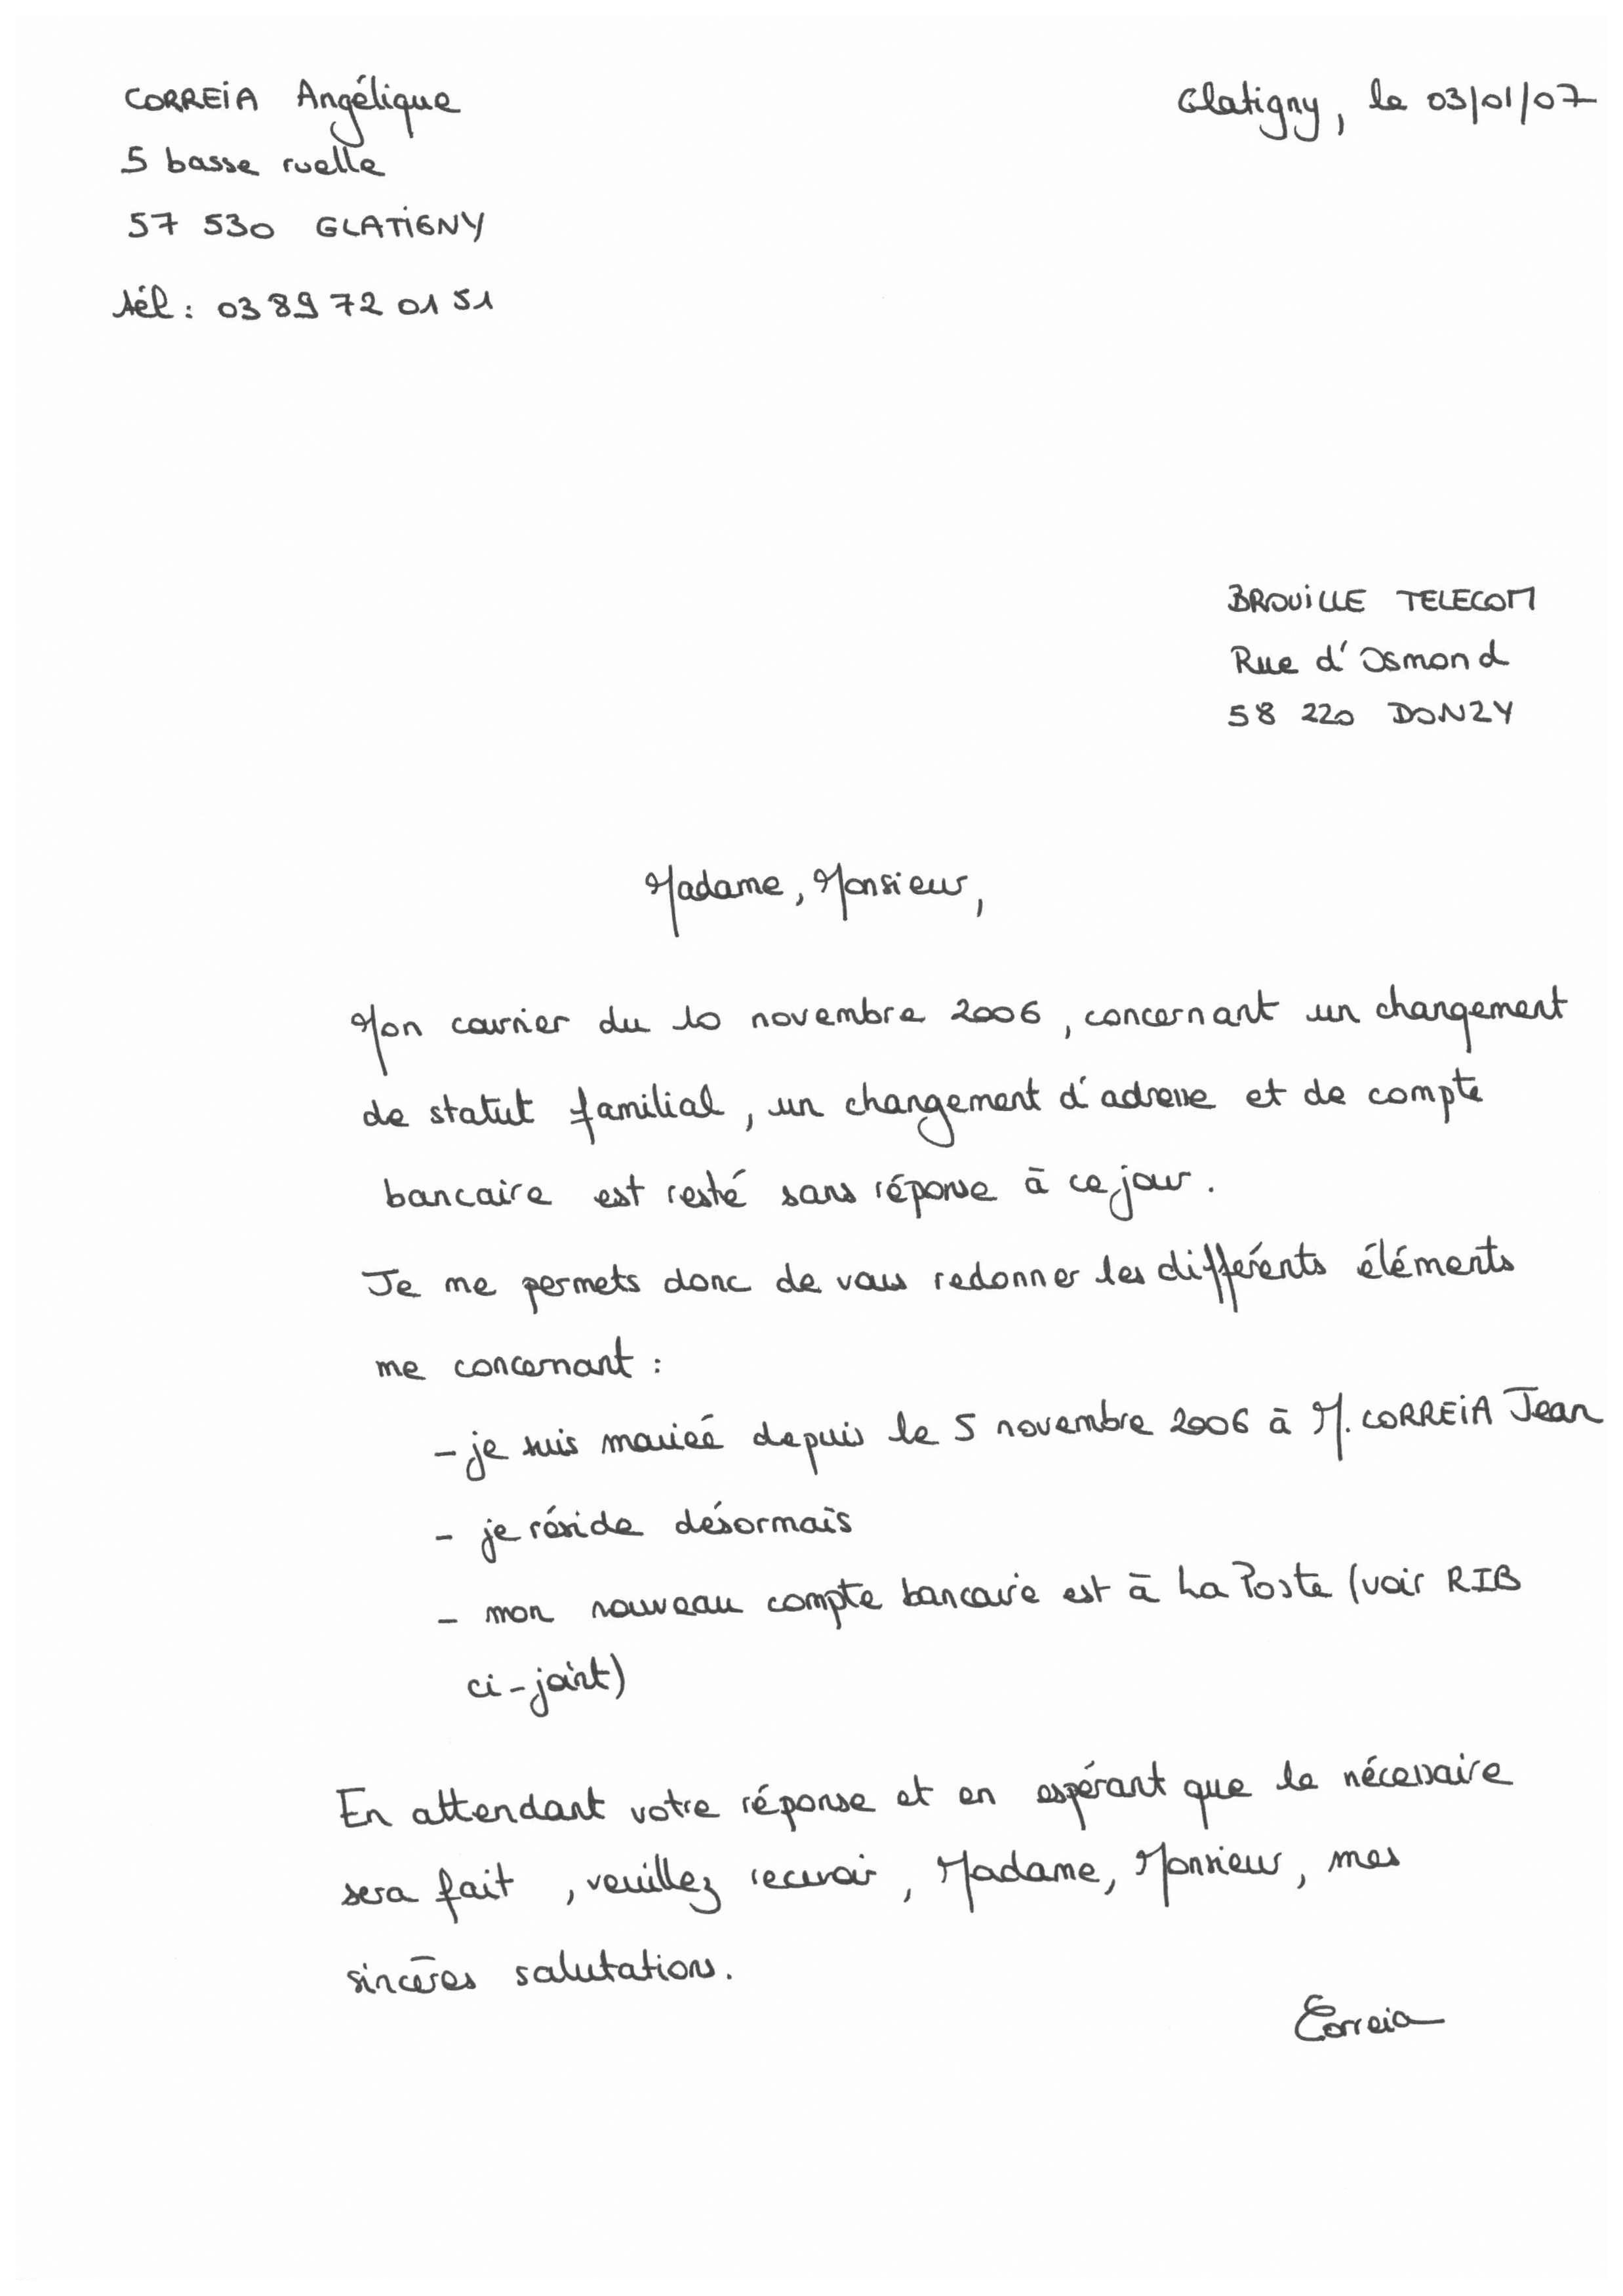 CORREIA Angélique
Glatigny, le 03/01/07
5 basse ruelle
57 530 GLATIGNY
tél : 03 89 72 01 51
BROUILLE TELECOM
Rue d'Osmond
58 220 DONZY
Madame, Monsieur,
Mon courrier du 10 novembre 2006, concernant un changement
de statut familial, un changement d'adresse et de compte
bancaire est resté sans réponse à ce jour.
Je me permets donc de vous redonner les différents éléments
me concernant :
- je suis mariée depuis le 5 novembre 2006 à M. CORREIA Jean
- je réside désormais
- mon nouveau compte bancaire est à La Poste (voir RIB
ci-joint)
En attendant votre réponse et en espérant que le nécessaire
sera fait, veuillez recevoir, Madame, Monsieur, mes
sincères salutations.
Correia